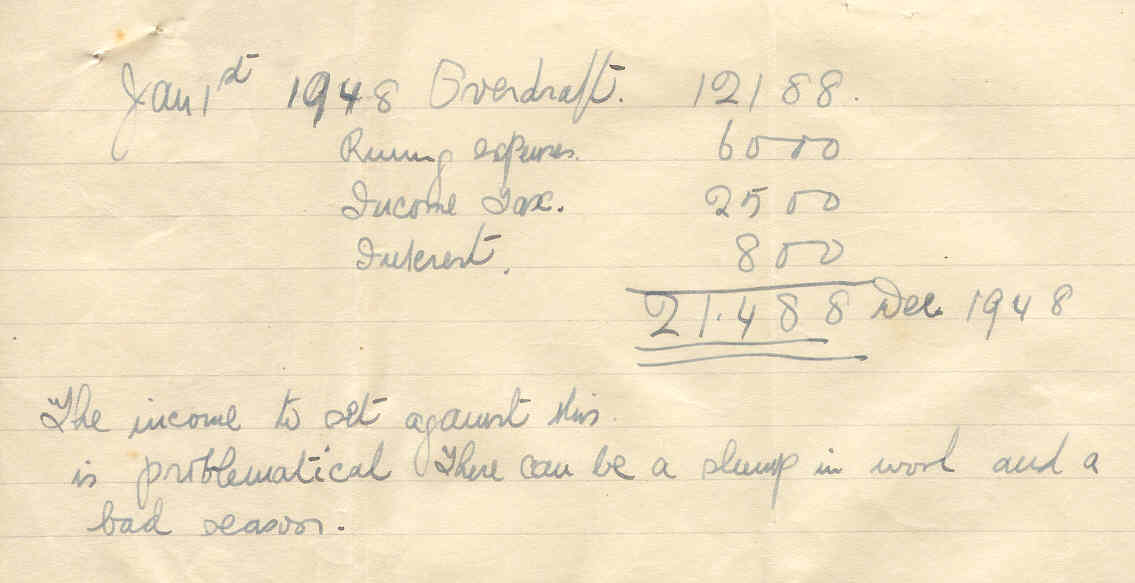 Jan 1st 1948 Overdraft. 12188.
Runing expenses. 6000
Income Tax. 2500
Interest. 800
21.488 Dec. 1948
The income to set against this.
is problematical There can be a slump in wool and a
bad season.